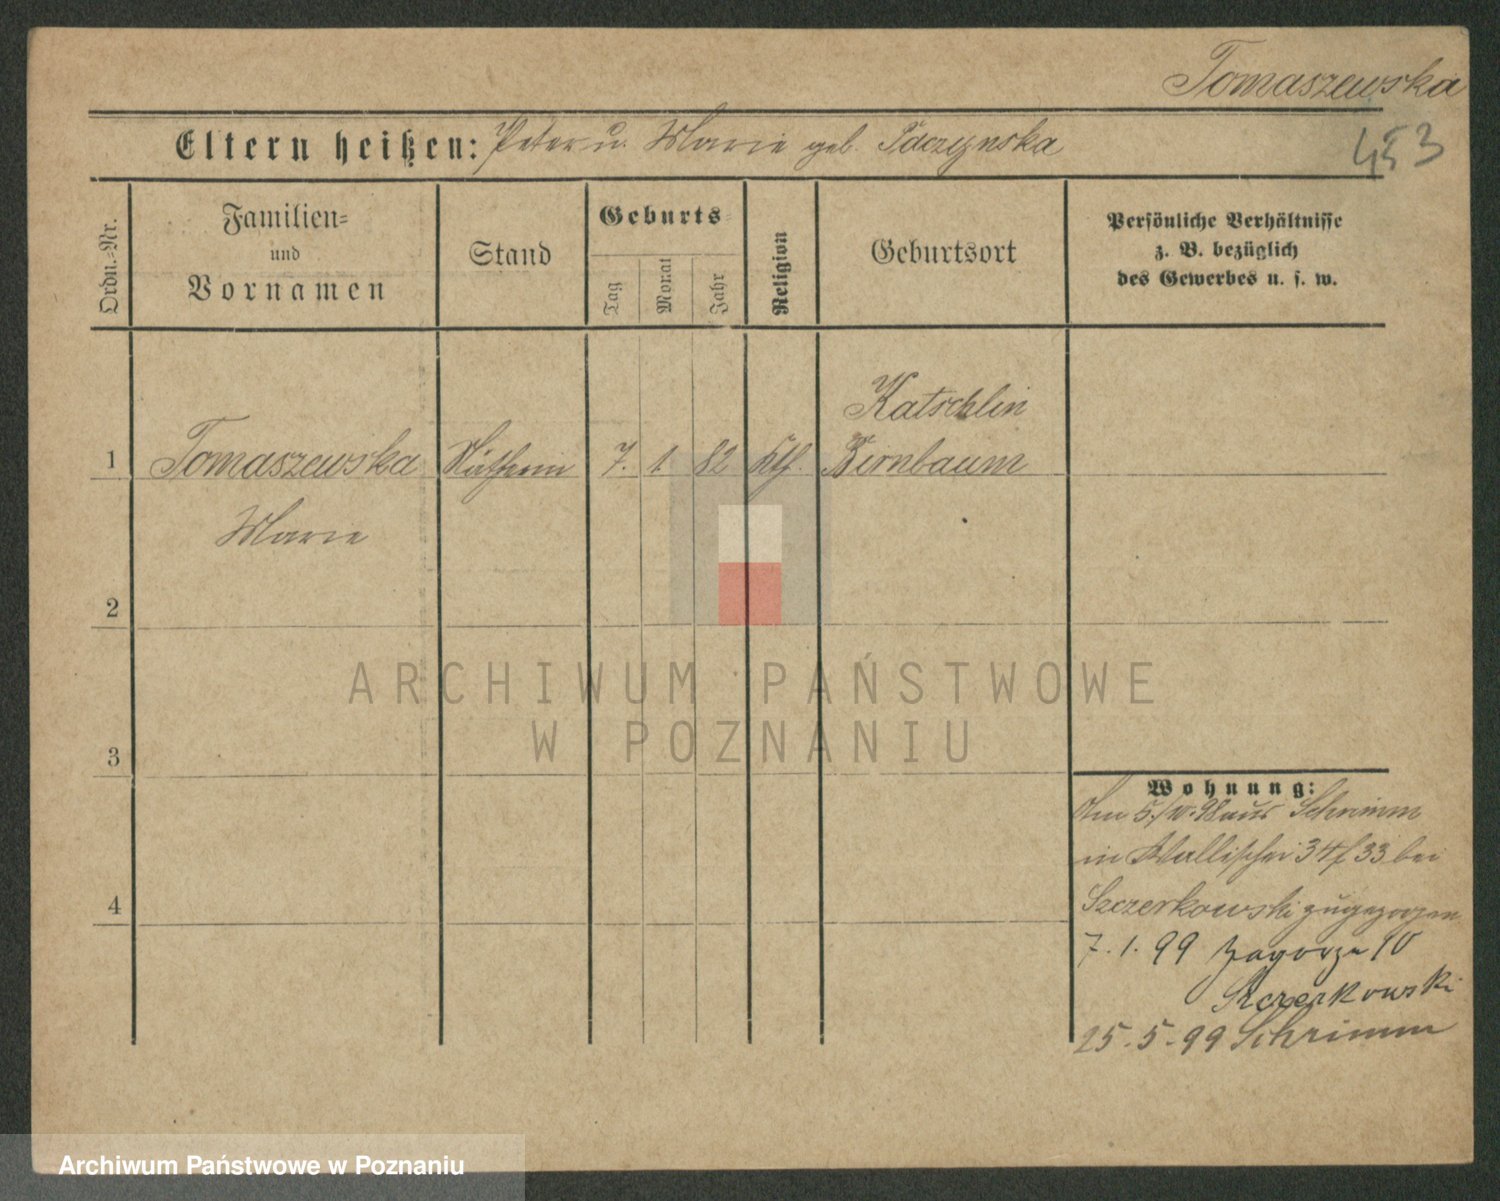 Tomaszewska
Eltern heißen: Peter u. Marie geb. Paczynska
453
Ordn.-Nr.
Familien-
und
Vornamen
Stand
Geburts-
Tag
Monat
Jahr
Religion
Geburtsort
Persönliche Verhältnisse
z. B. bezüglich
des Gewerbes u. s. w.
Katschlin
1 Tomaszewska Näherin 7. 1. 82 Kth. Birnbaum
Marie
2
3
4
Wohnung:
Am 5./ 98 aus Schrimm
in Wallischei 34/33 bei
Szczerkowski zugezogen
7.1.99 Zagorze 10
Szczerkowski
25.5.99 Schrimm
ARCHIWUM PAŃSTWOWE
W POZNANIU
Archiwum Państwowe w Poznaniu